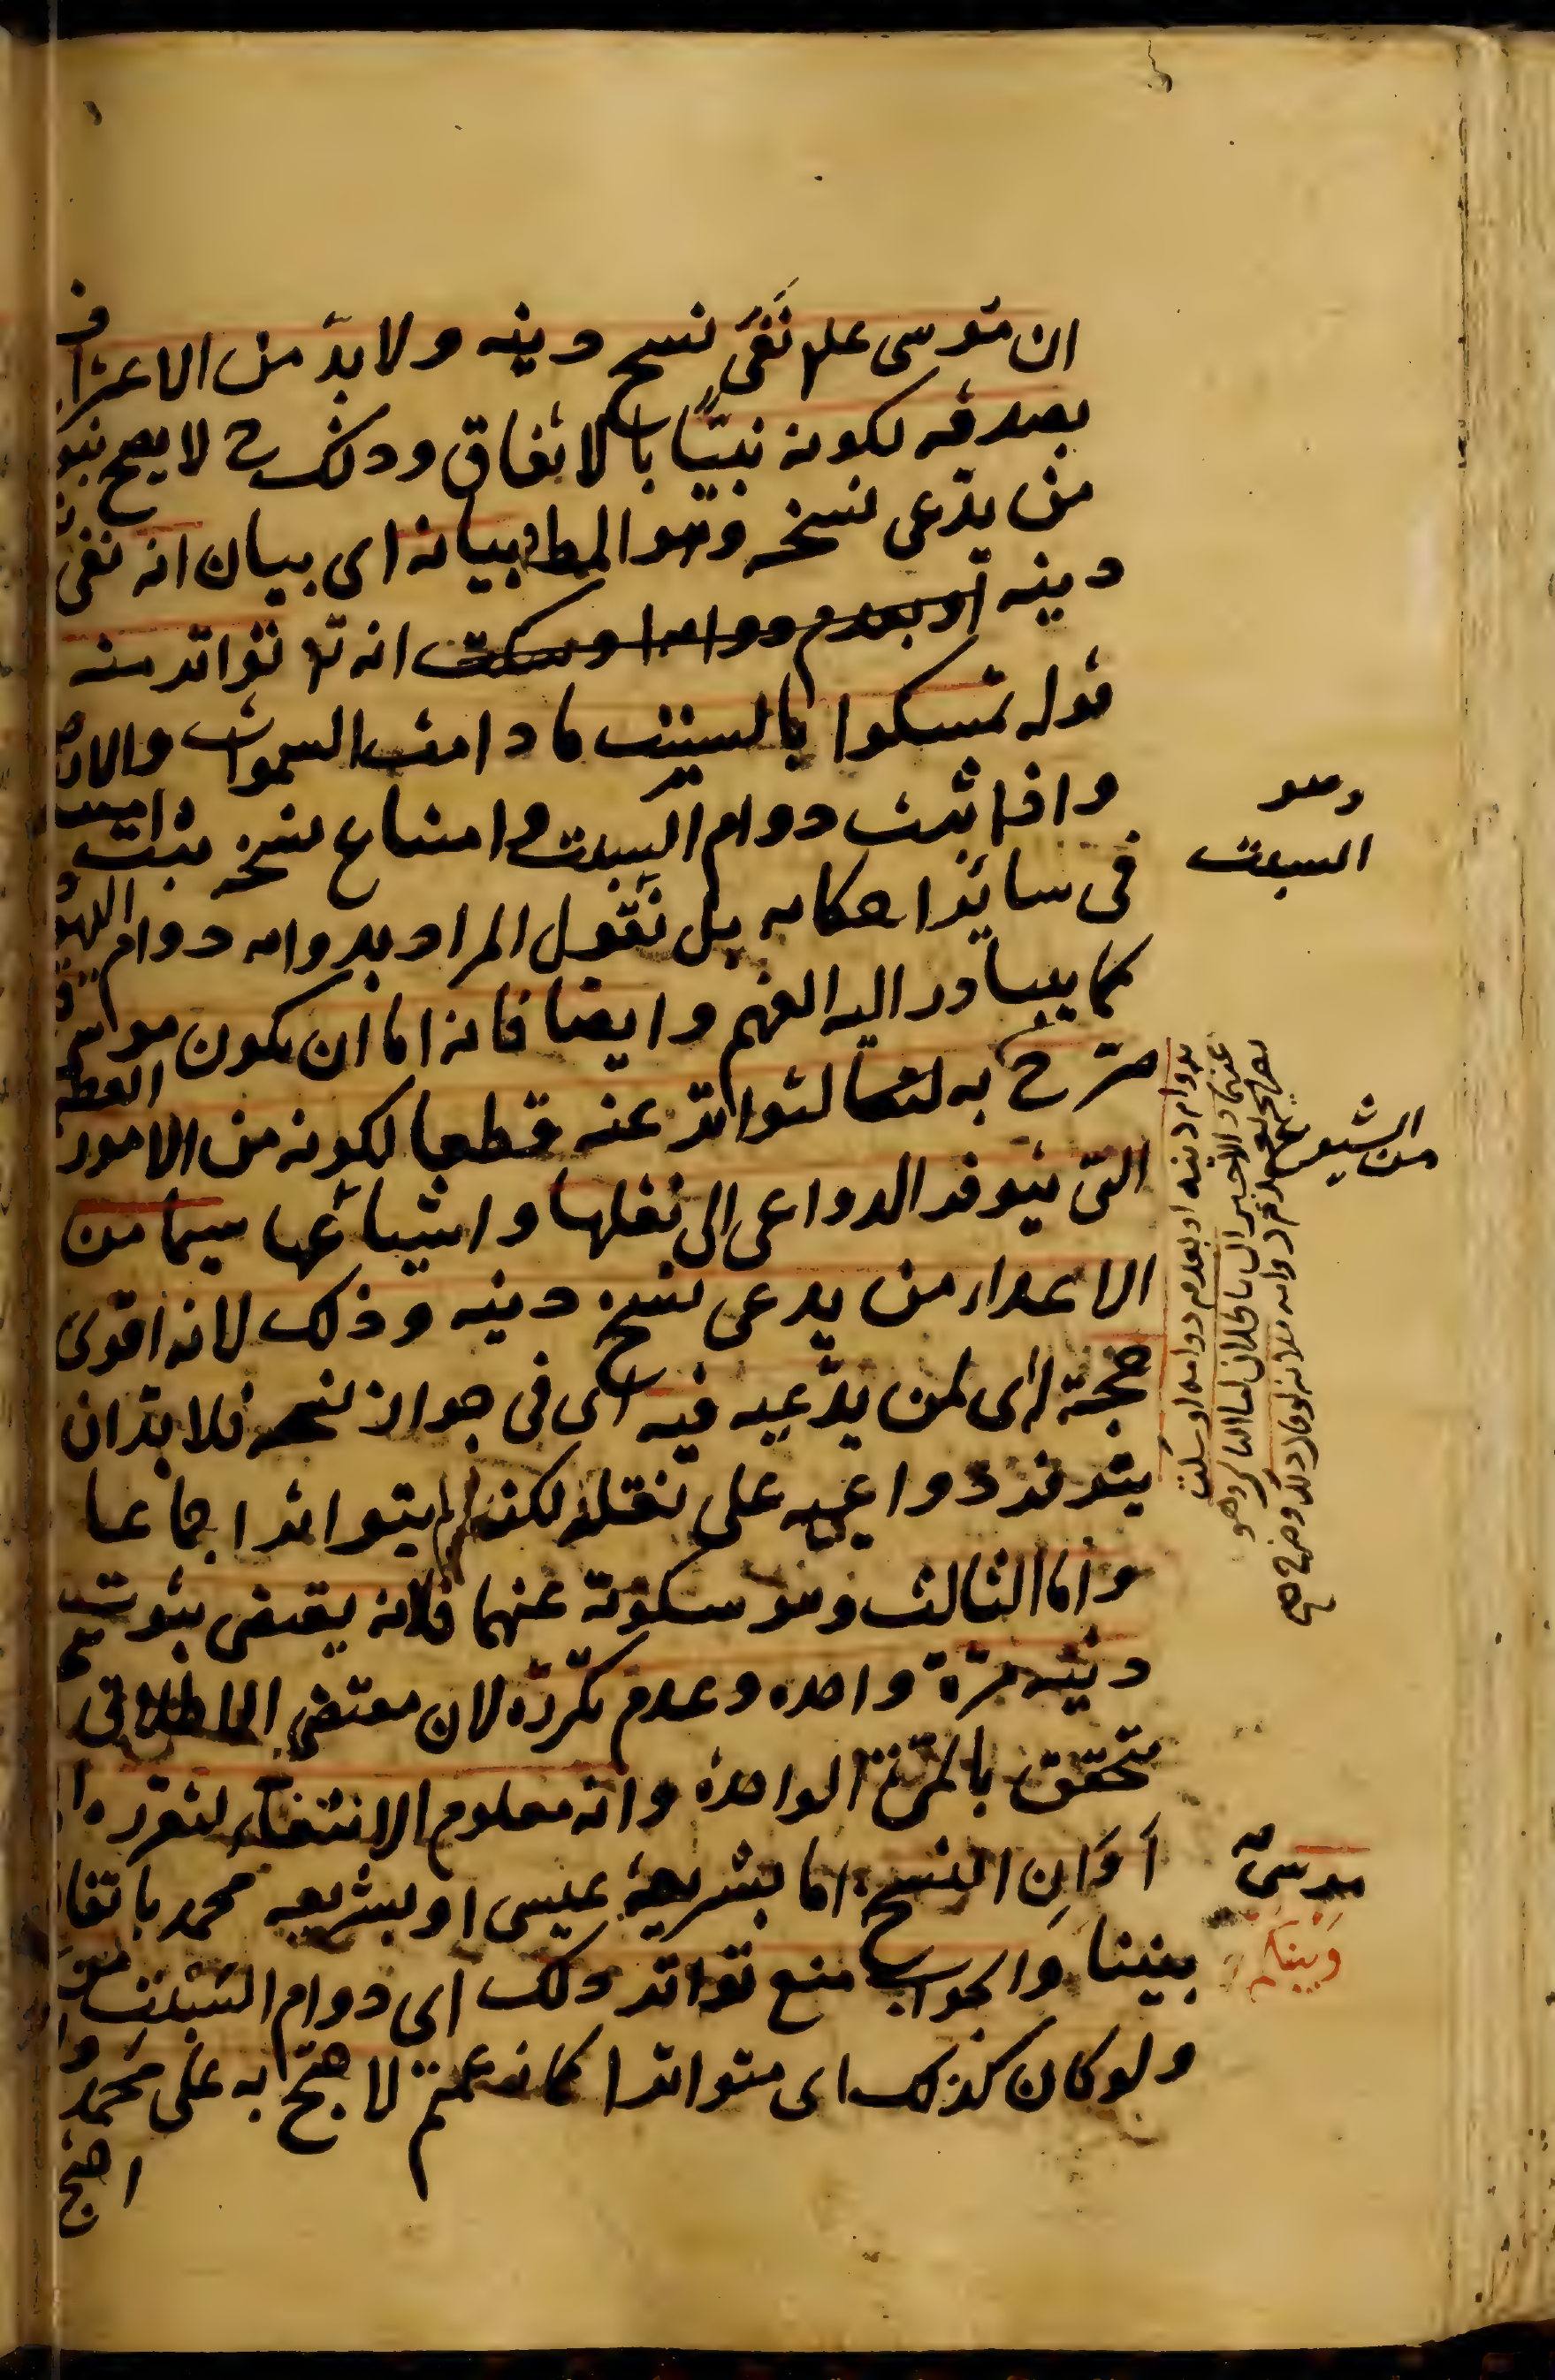 ان موسى علم نفى نسخ دينه ولا بد من الاعتراف
بصدقه لكونه نبيًّا بالاتفاق وذلك لا يصح نبو
من يدّعى نسخه وهو المط بيانه اى بيان انه نفى
دينه انه تواتر منه
قوله تمسكوا بالسبت ما دامت السموات والارض
واذا ثبت دوام السبت وامتناع نسخه ثبت
فى سائر احكامه بل نقول المراد بدوامه دوام اليهود
كما يتبادر اليه الفهم وايضا فانه اما ان يكون موسى
صرّح به لتواتر عنه قطعا لكونه من الامور العظ
التى يتوفر الدواعى الى نقلها واشاعتها سيما من
الاعداء من يدعى نسخ دينه وذلك لانه اقوى
حجة له اى لمن يدّعيه فيه اى فى جواز نسخه فلا بد ان
يتوفر دواعيه على نقله لكنه لم يتواتر اجماعا
واما الثالث وهو سكوته عنهما فلانه يقتضى ثبوت
دينه مرّة واحده وعدم تكرّره لان مقتضى الاطلاق
يتحقق بالمرّة الواحدة وانه معلوم الانتفاء لتقرره
اَوَانِ النسخ اما بشريعة عيسى او بشريعه محمد باتفا
بيننا والجواب منع تواتر ذلك اى دوام السبت
ولو كان كذلك اى متواترا كما زعمتم لاحتج به على محمد
احتج
وهو
السبت
بدوام دينه او بعدم دوامه او سكت
عنهما والاخيران باطلان
من
موسى
وبينكم